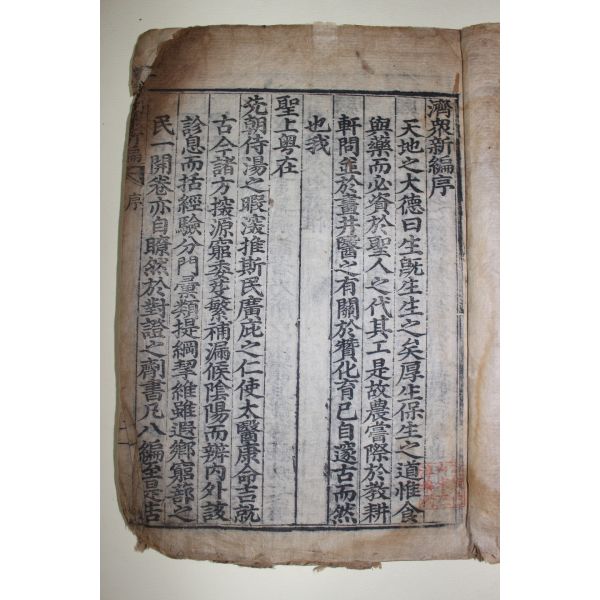 濟衆新編序
天地之大德曰生旣生生之矣厚生保生之道惟食
與藥而必資於聖人之代其工是故農嘗際於敎耕
軒問並於畫井醫之有關於贊化育已自邃古而然
也我
聖上粤在
先朝侍湯之暇滾推斯民廣庇之仁使太醫康命吉就
古今諸方探源窮委芟繁補漏候陰陽而辨內外該
診息而括經驗分門彙類提綱挈維雖遐鄕窮蔀之
民一開卷亦自瞭然於對證之劑書凡八編至是告
新編 序